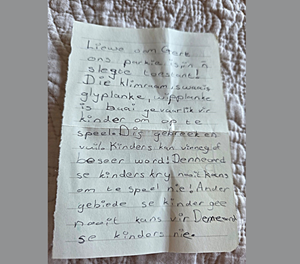 Liewe oom Gert
ons parkie is in 'n
slegte toestand!
Die klimraam, swaais
glyplanke, wipplanke
is baai gevaarlik vir
kinder om op te
speel. Dis gebreek en
vuil. Kinders kan vieneg of
beseer word! Denneoord
se kinders kry nooit kans
om te speel nie! Ander
gebiede se kinder gee
nooit kans vir Denneoord
se kinders nie.